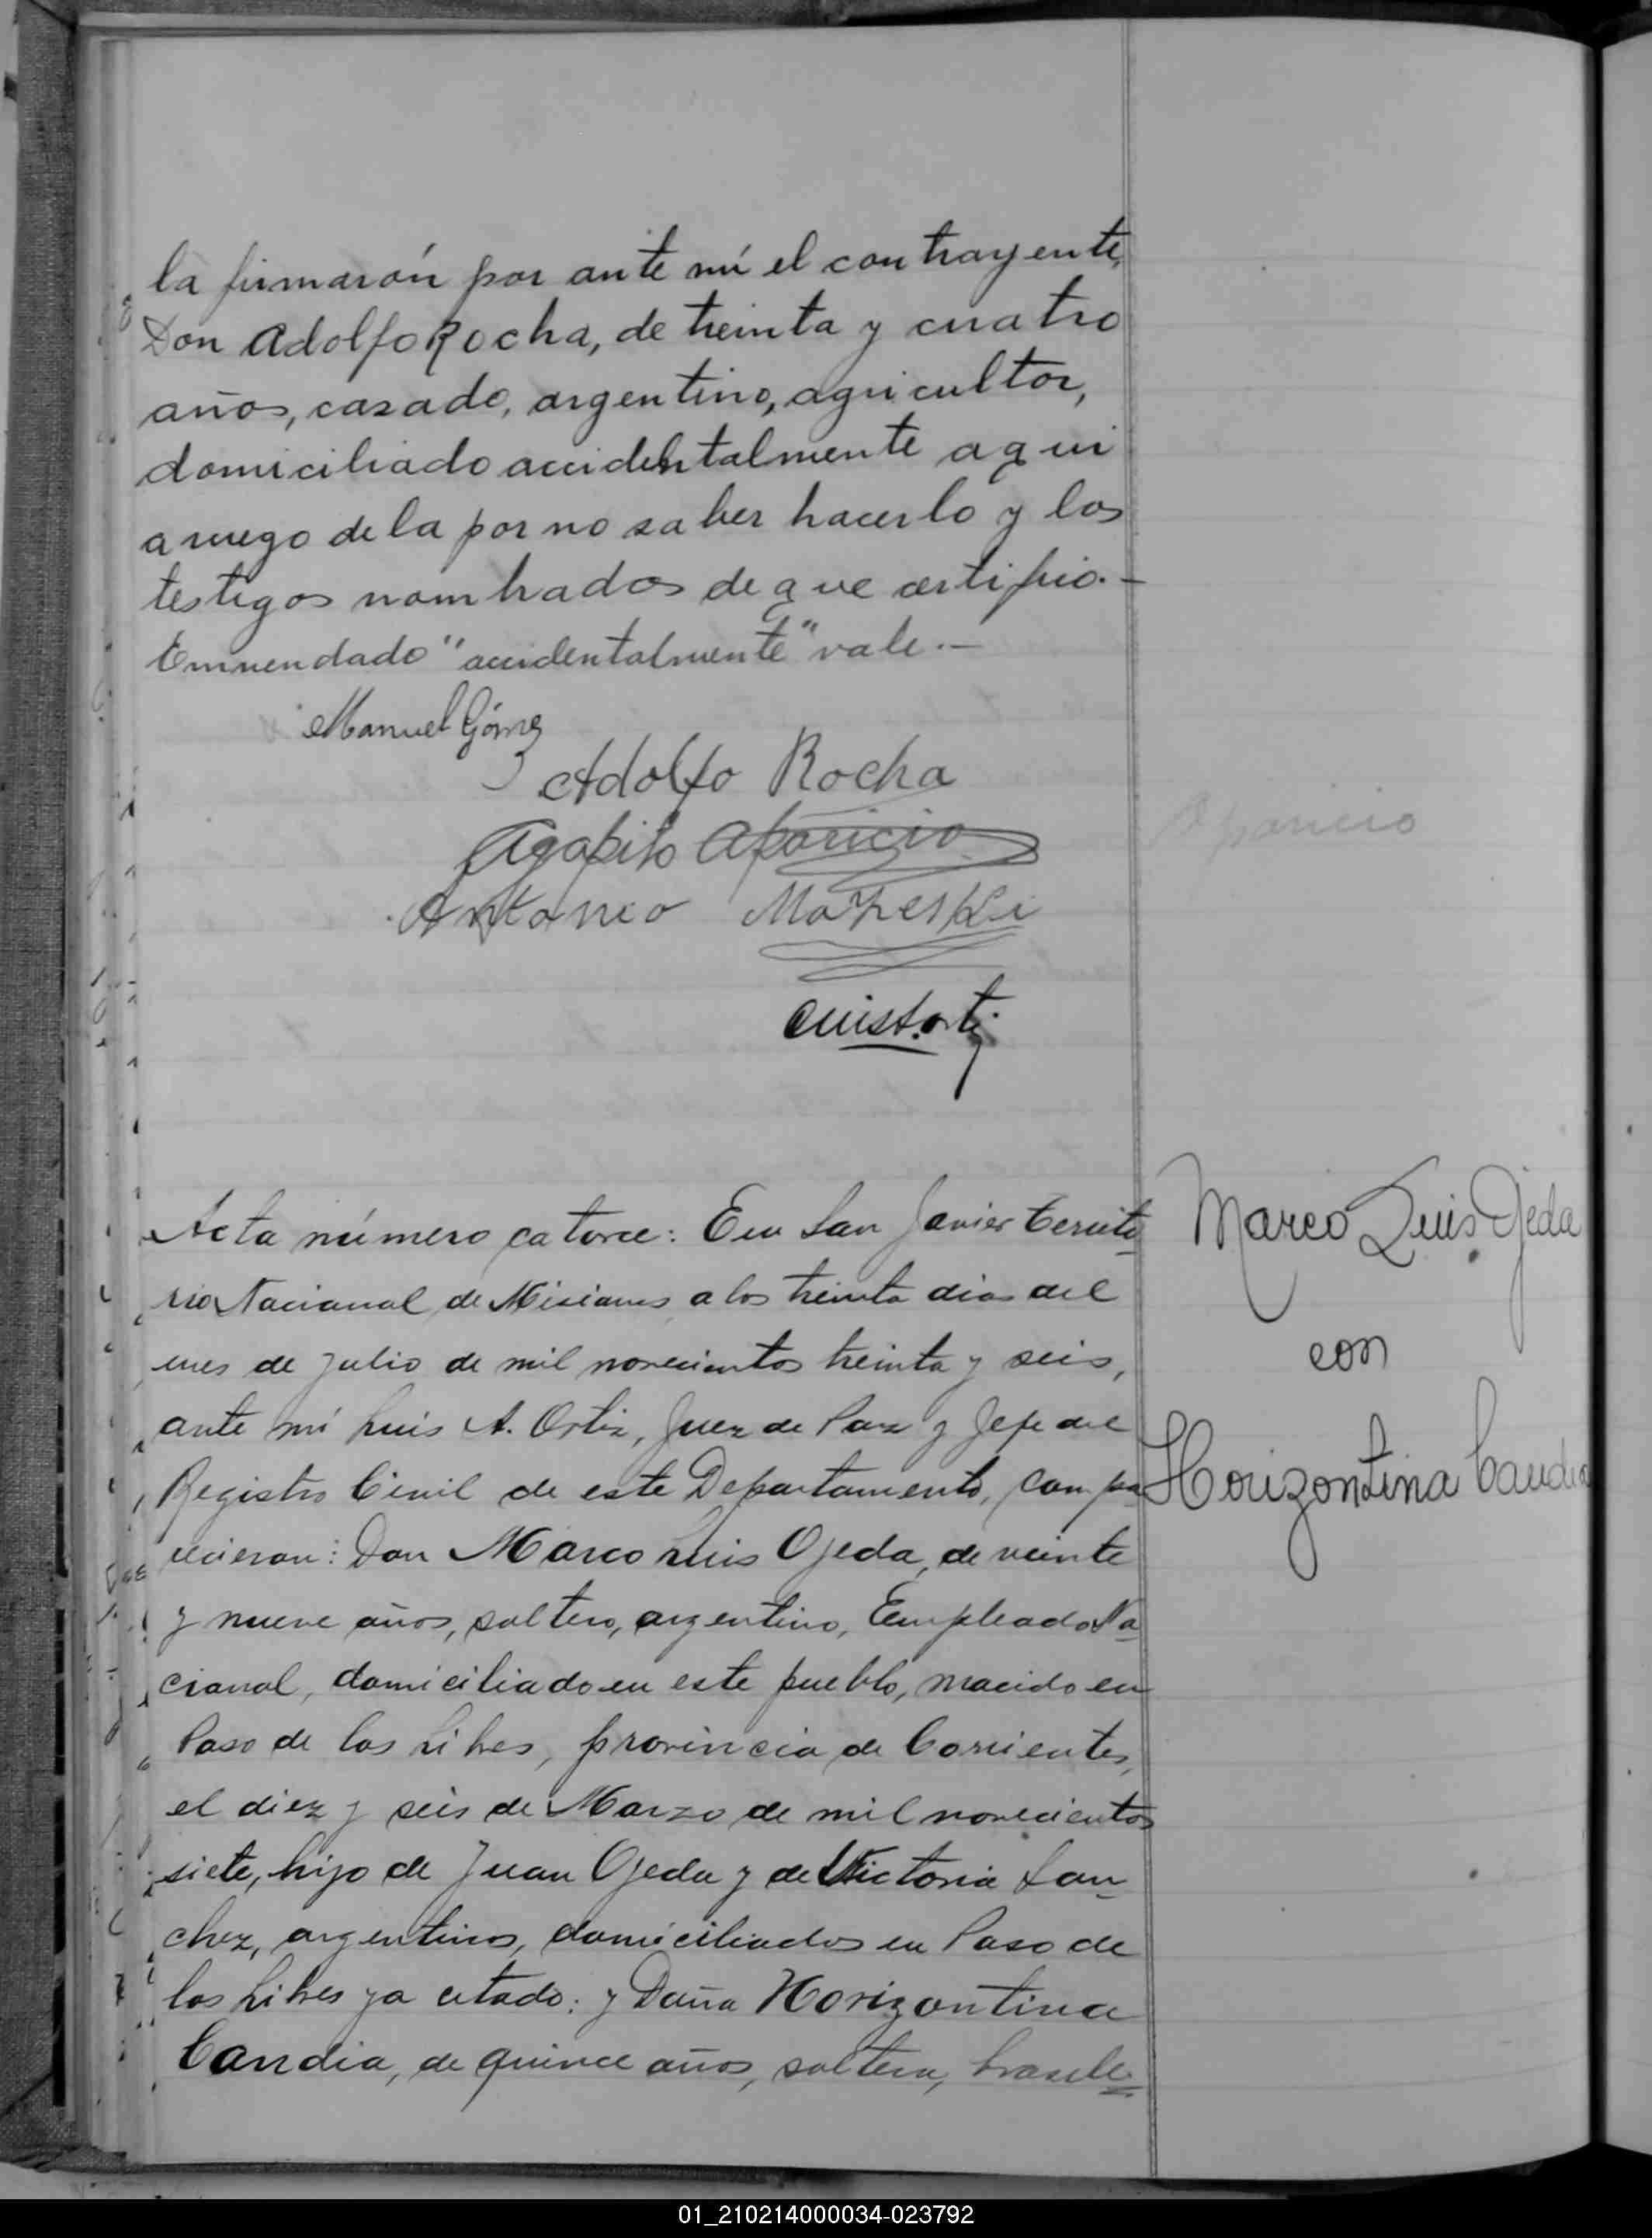 la firmarón por ante mí el contrayente,
Don Adolfo Rocha, de treinta y cuatro
años, casado, argentino, agricultor,
domiciliado accidentalmente aqui
a ruego de la por no saber hacerlo y los
testigos nombrados de que certifico.—
Enmendado "accidentalmente" vale.—
Manuel Gómez
Adolfo Rocha
Agapito Aparicio
Aparicio
Antonio
Acta número catorce: En San Javier Territo
rio Nacional de Misiones, a los treinta dias del
mes de julio de mil novecientos treinta y seis,
ante mí Luis A. Ortiz, Juez de Paz y Jefe del
Registro Civil de este Departamento, compa
recieron: Don Marco Luis Ojeda, de veinte
y nueve años, soltero, argentino, Empleado Na
cional, domiciliado en este pueblo, nacido en
Paso de los Libres, provincia de Corrientes,
el diez y seis de Marzo de mil novecientos
siete, hijo de Juan Ojeda y de Victoria San
chez, argentinos, domiciliados en Paso de
los Libres ya citado: y Doña Horizontina
Candia, de quince años, soltera, brasile
Marco Luis Ojeda
con
Horizontina Candia
01_210214000034-023792